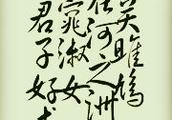 关雎鸠
在河之洲
窕淑女
君子好逑